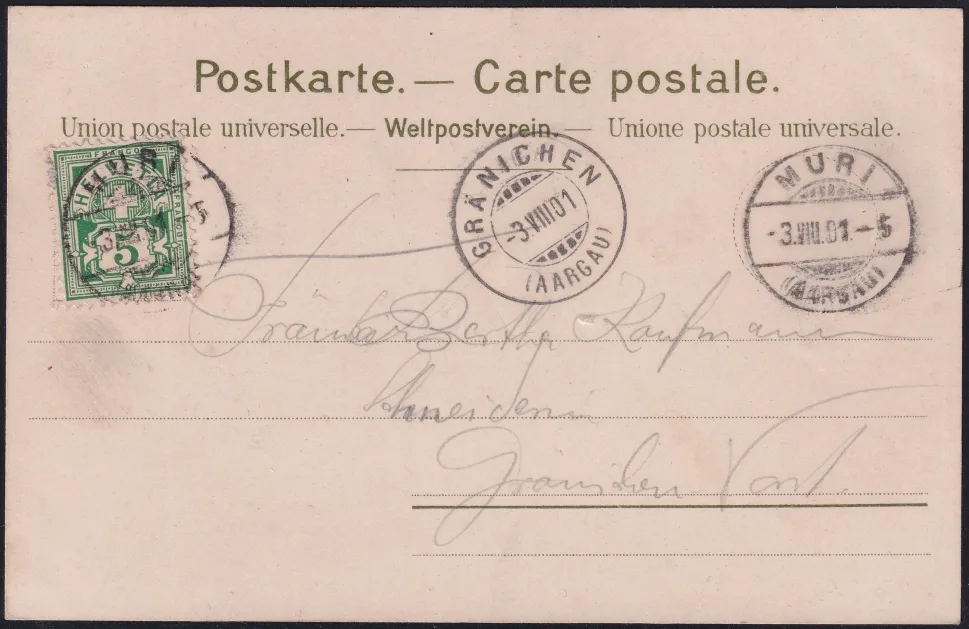 Postkarte. — Carte postale.
Union postale universelle. — Weltpostverein. — Unione postale universale.
FRANCO
HELVETIA
FRANCO
5
GRÄNICHEN
-3.VIII.01
(AARGAU)
MURI
-3.VIII.01.-5
(AARGAU)
Fräulein Bertha Kaufmann
Schneiderin
Gränichen